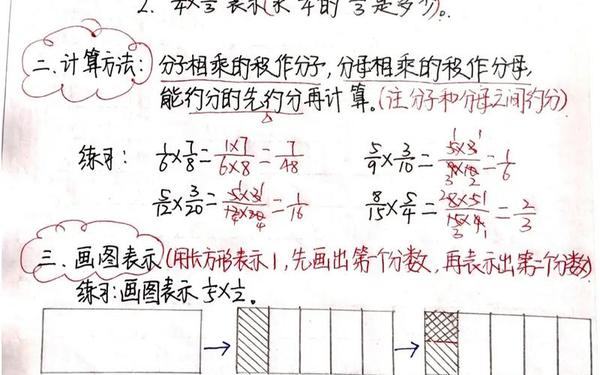 2. 表示求 的 是多少。
二、计算方法：分子相乘的积作分子，分母相乘的积作分母，
能约分的先约分再计算。(注分子和分母之间约分)
练习：1/6×7/8=1×7/6×8=7/48 5/9×3/10=5×3/9×10=1/6
5/12×3/20=5×3/12×20=1/16 8/15×5/4=8×5/15×4=2/3
三、画图表示(用长方形表示1，先画出第一个分数，再表示出第二个分数)
练习：画图表示1/5×1/2。